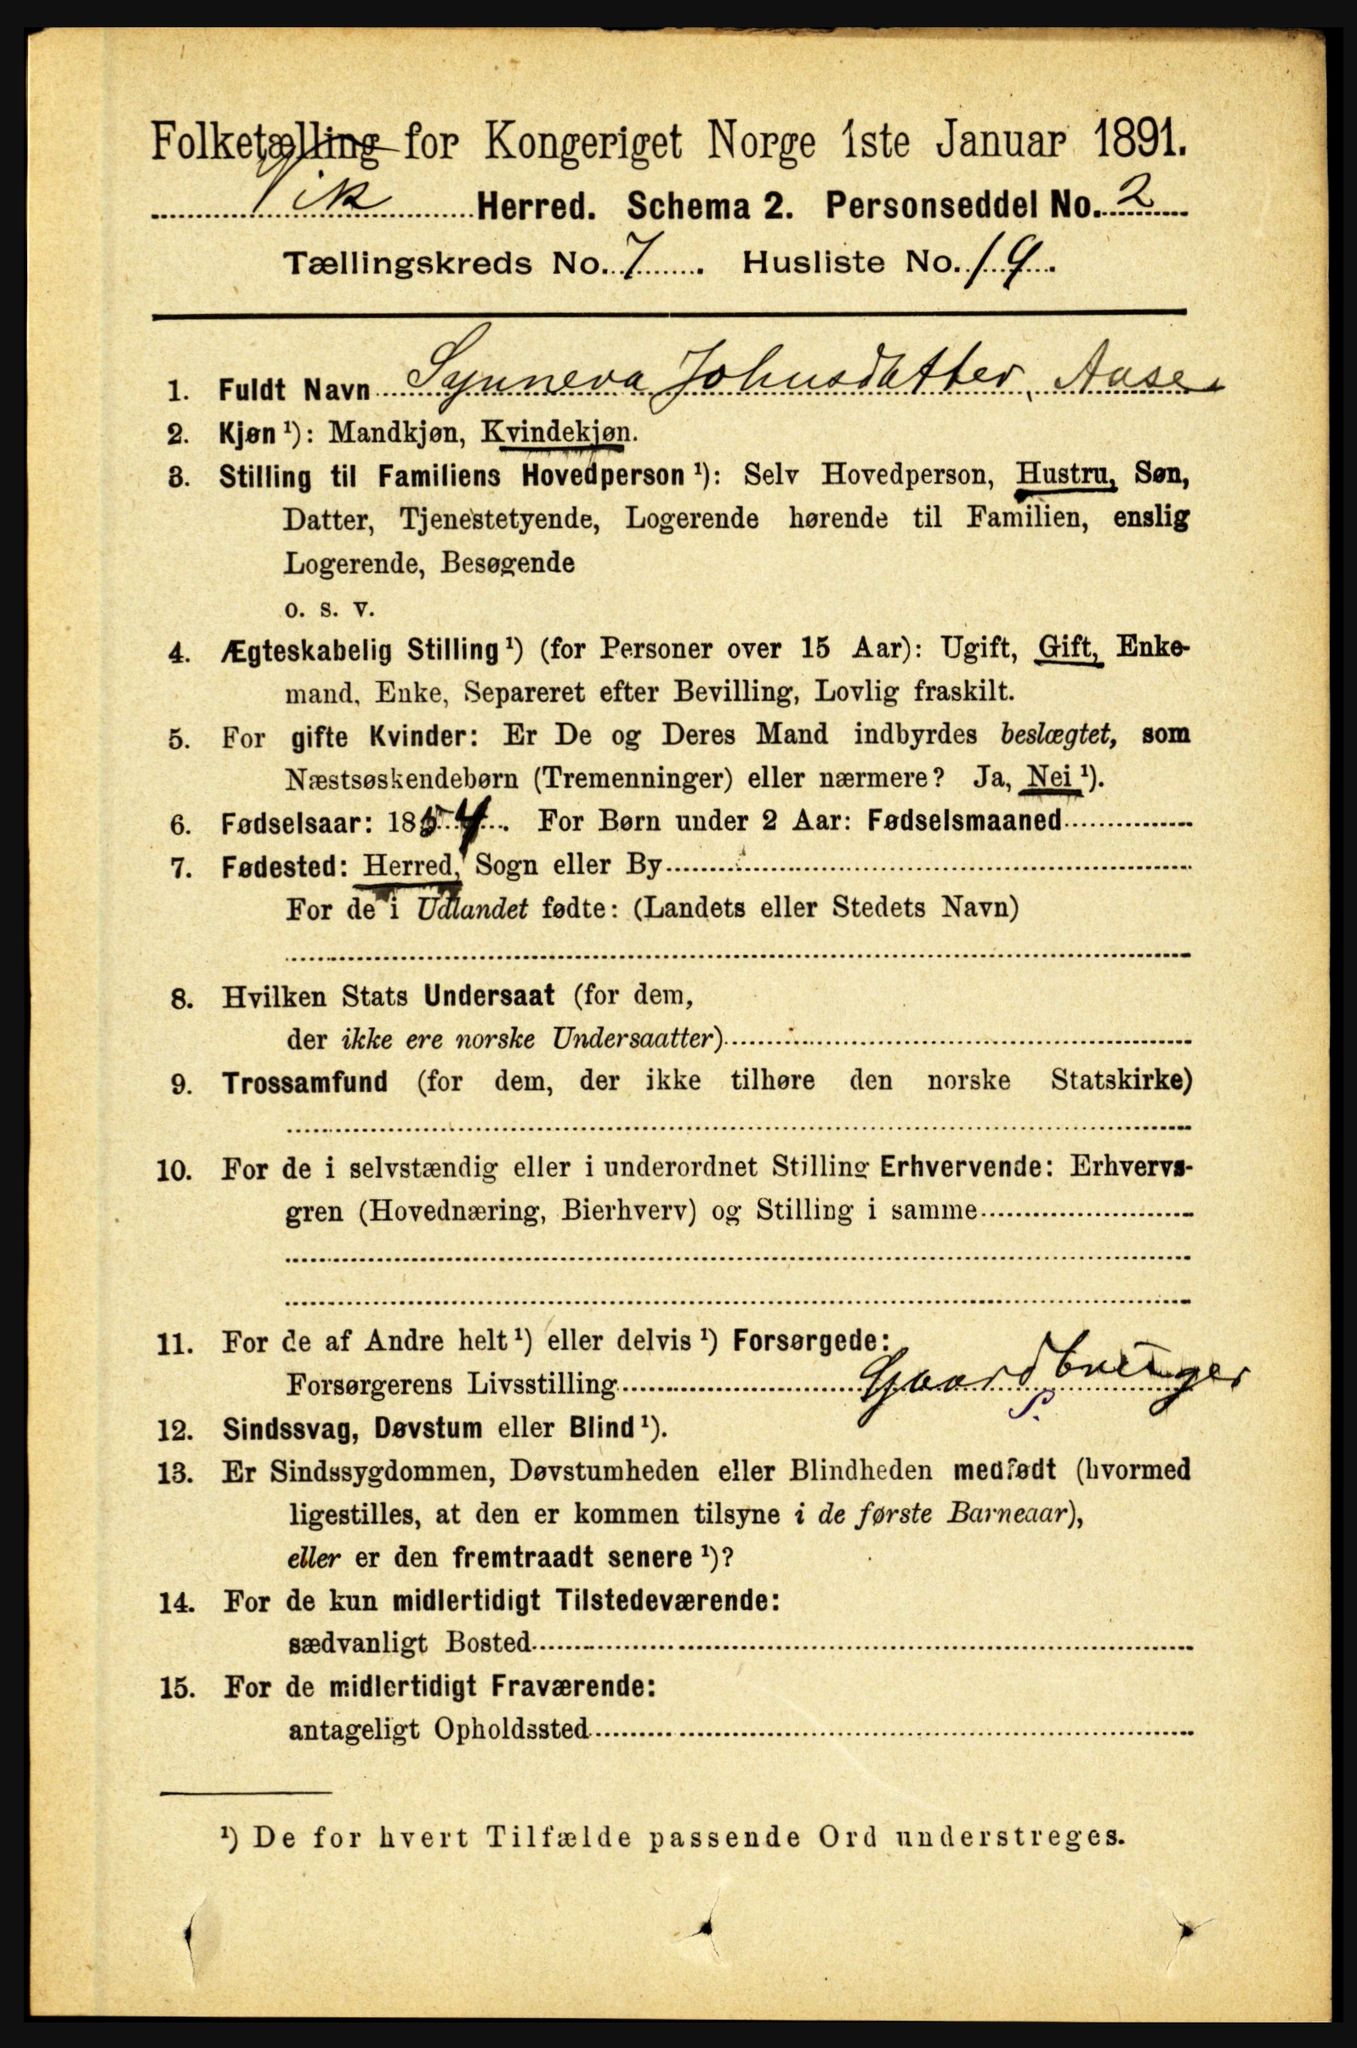 Folketælling for Kongeriget Norge 1ste Januar 1891.
Vik Herred. Schema 2. Personseddel No. 2
Tællingskreds No. 7. Husliste No. 19.
1. Fuldt Navn Synneva Johnsdatter Aase
2. Kjøn¹): Mandkjøn, Kvindekjøn.
3. Stilling til Familiens Hovedperson¹): Selv Hovedperson, Hustru, Søn,
Datter, Tjenestetyende, Logerende hørende til Familien, enslig
Logerende, Besøgende
o. s. v.
4. Ægteskabelig Stilling¹) (for Personer over 15 Aar): Ugift, Gift, Enke-
mand, Enke, Separeret efter Bevilling, Lovlig fraskilt.
5. For gifte Kvinder: Er De og Deres Mand indbyrdes beslægtet, som
Næstsøskendebørn (Tremenninger) eller nærmere? Ja, Nei¹).
6. Fødselsaar: 1854. For Børn under 2 Aar: Fødselsmaaned
7. Fødested: Herred, Sogn eller By
For de i Udlandet fødte: (Landets eller Stedets Navn)
8. Hvilken Stats Undersaat (for dem,
der ikke ere norske Undersaatter)
9. Trossamfund (for dem, der ikke tilhøre den norske Statskirke)
10. For de i selvstændig eller i underordnet Stilling Erhvervende: Erhvervs-
gren (Hovednæring, Bierhverv) og Stilling i samme
11. For de af Andre helt¹) eller delvis¹) Forsørgede:
Forsørgerens Livsstilling Gaardbruger
S.
12. Sindssvag, Døvstum eller Blind¹).
13. Er Sindssygdommen, Døvstumheden eller Blindheden medfødt (hvormed
ligestilles, at den er kommen tilsyne i de første Barneaar),
eller er den fremtraadt senere¹)?
14. For de kun midlertidigt Tilstedeværende:
sædvanligt Bosted
15. For de midlertidigt Fraværende:
antageligt Opholdssted
¹) De for hvert Tilfælde passende Ord understreges.